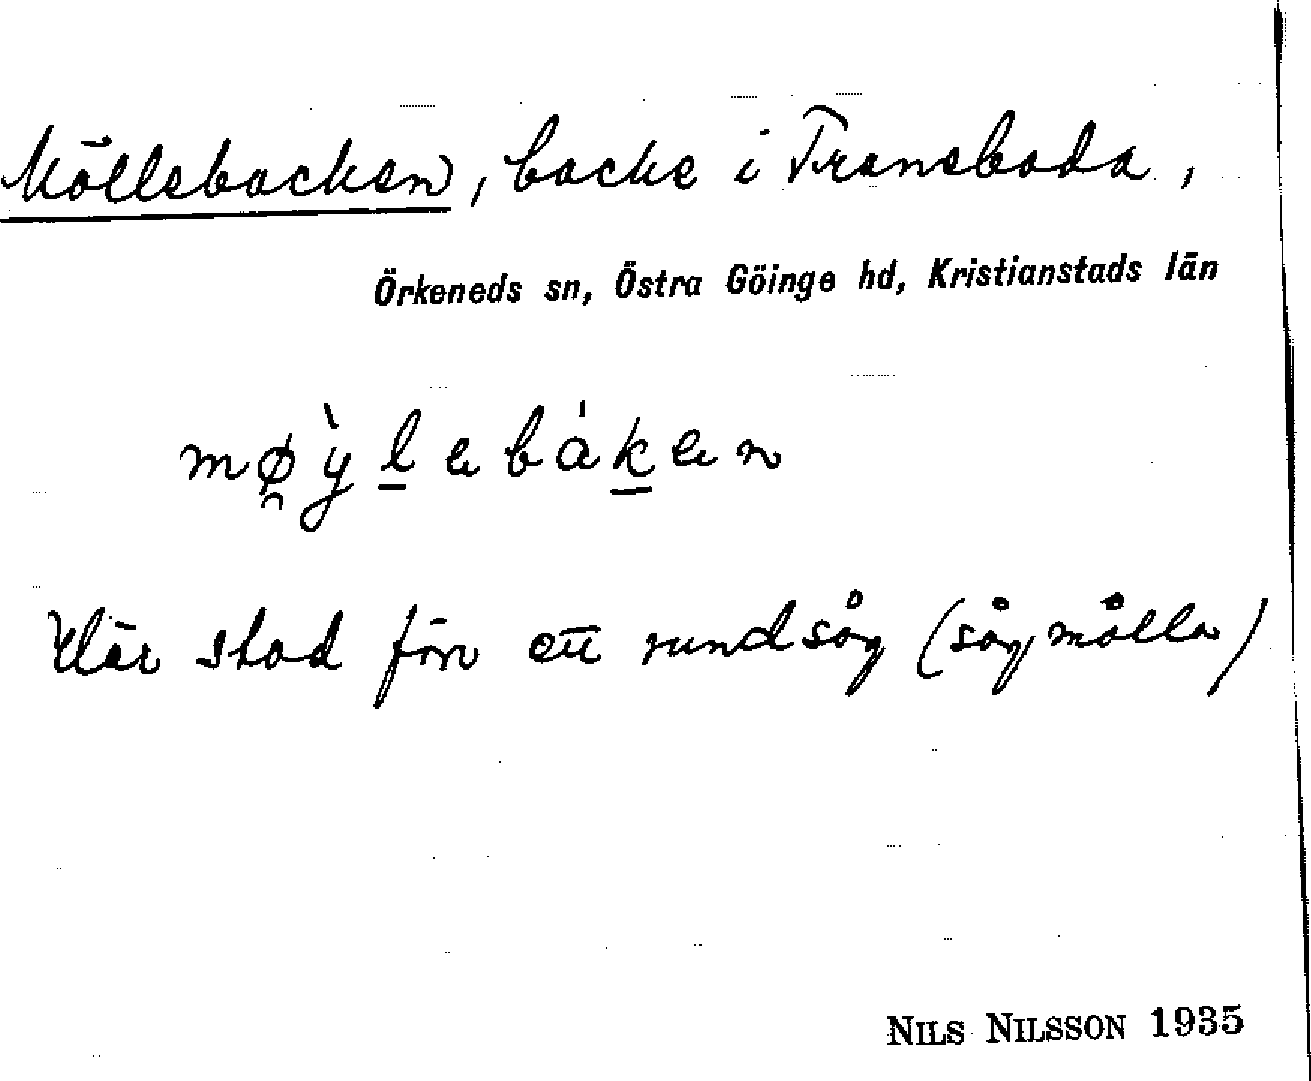 Möllebacken, backe i Traneboda,
Örkeneds sn, Östra Göinge hd, Kristianstads län
mø̯ỳl̲ebák̲en
Här stod förr ett rundsåg (sågmölla)
NILS NILSSON 1935